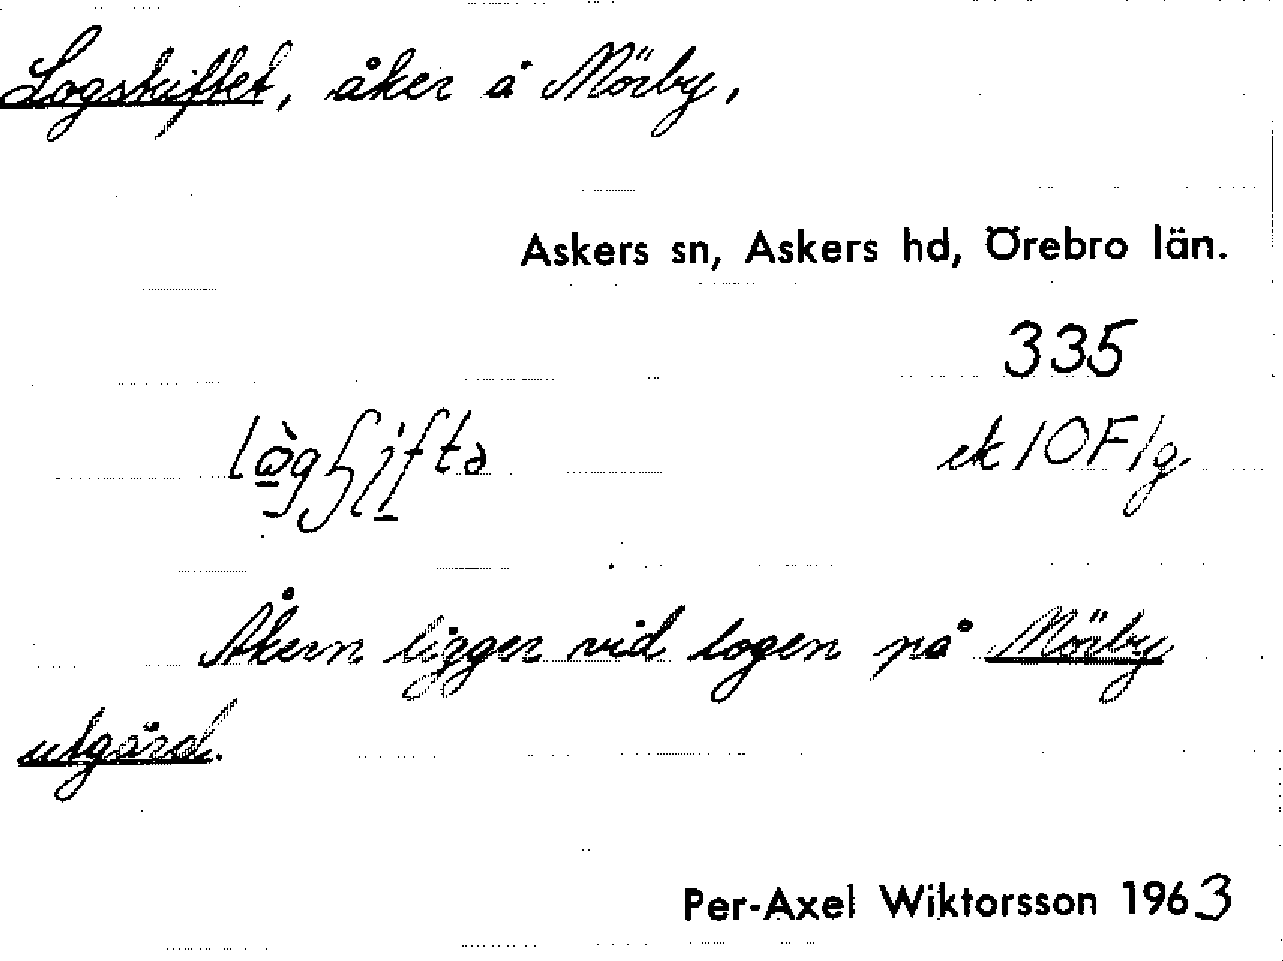 Logskiftet, åker å Mörby,
Askers sn, Askers hd, Örebro län.
335
ek 10F1g
Åkern ligger vid logen på Mörby
utgård.
Per-Axel Wiktorsson 1963